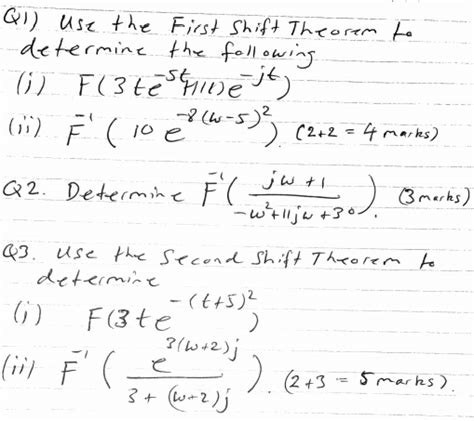 Q1) Use the First Shift Theorem to
determine the following
(i) F(3te^{-5t}H(t)e^{-jt})
(ii) F^{-1}(10 e^{-8(w-5)^2}). (2+2 = 4 marks)
Q2. Determine F^{-1}((jw+1)/(-w^2+11jw+30)). (3 marks)
Q3. Use the Second Shift Theorem to
determine
(i) F(3te^{-(t+5)^2})
(ii) F^{-1}(e^{3(w+2)j}/(3+(w+2)j)). (2+3 = 5 marks).